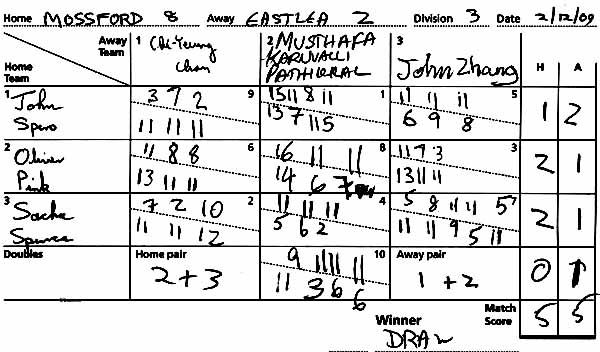 Home MOSSFORD 8 Away EASTLEA 2 Division 3 Date 2/12/09
Away Team 1 Chi-Yeung Chan 2 MUSTHAFA KARUVALLI PATHIKKAL 3 John Zhang H A
Home Team
1 John Spero
9 3 7 2
11 11 11
1 15 11 8 11
13 7 11 5
5 11 11 11
6 9 8
1 2
2 Oliver Pink
6 11 8 8
13 11 11
8 16 11 11
14 6 7
3 11 7 3
13 11 11
2 1
3 Sacha
2 7 2 10
11 11 12
4 11 11 11
5 6 2
7 5 8 11 11 5
11 11 9 5 11
2 1
Doubles
Home pair 2+3
10 9 11 11 11
11 3 6 6
Away pair 1+2
0 1
Match Score 5 5
Winner DRAW